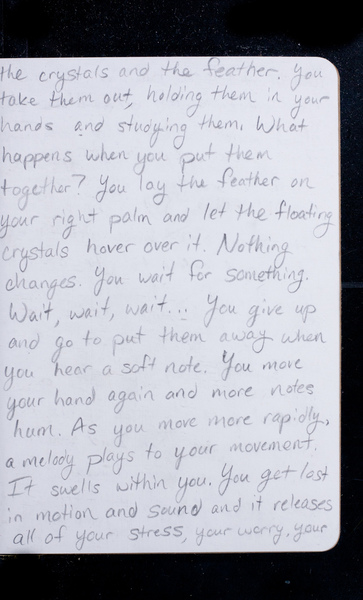 the crystals and the feather. You
take them out, holding them in your
hands and studying them. What
happens when you put them
together? You lay the feather on
your right palm and let the floating
crystals hover over it. Nothing
changes. You wait for something.
Wait, wait, wait... You give up
and go to put them away when
you hear a soft note. You move
your hand again and more notes
hum. As you move more rapidly,
a melody plays to your movement.
It swells within you. You get lost
in motion and sound and it releases
all of your stress, your worry, your